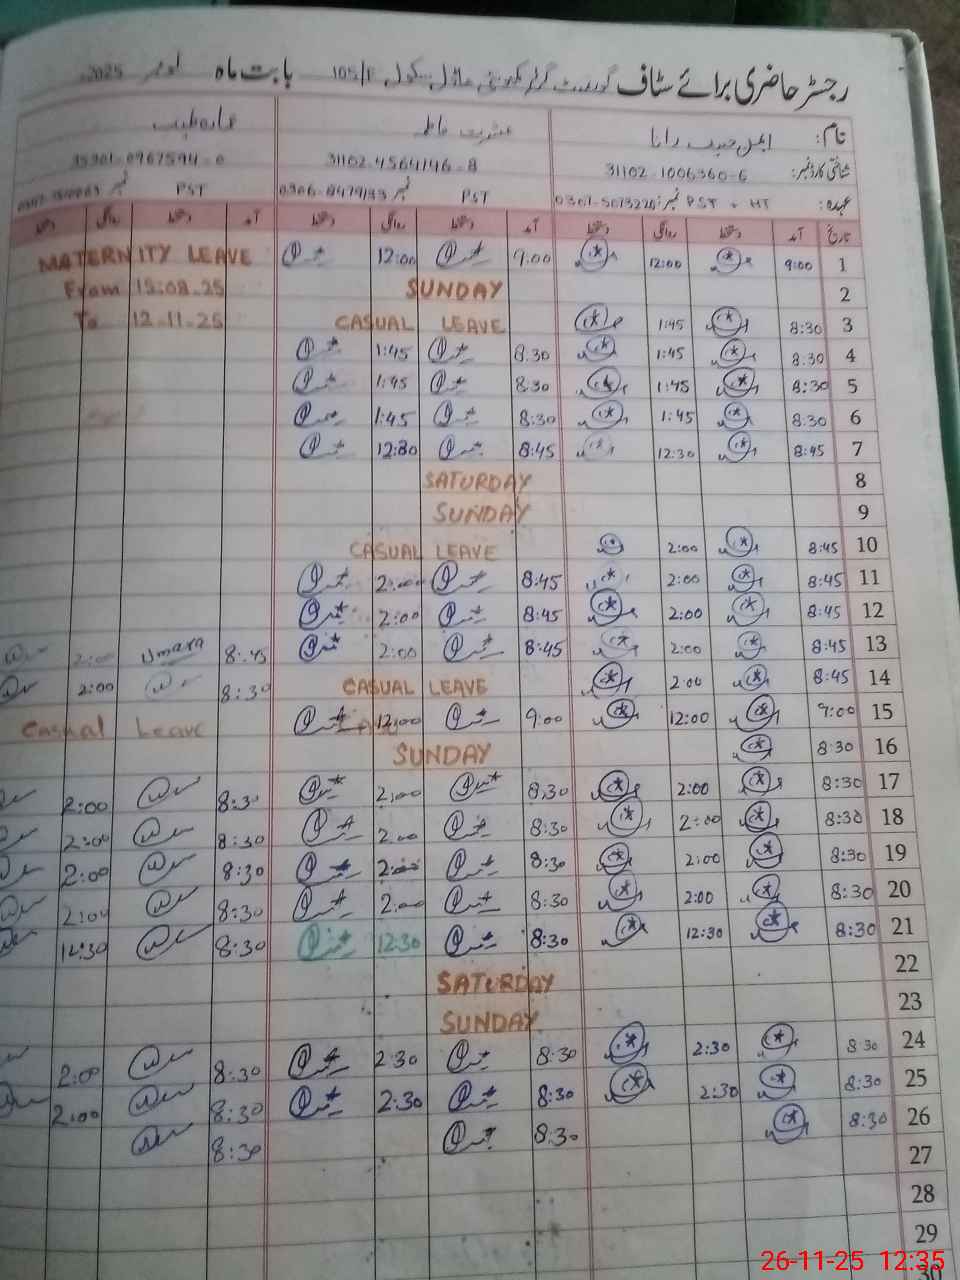 رجسٹر حاضری برائے سٹاف گورنمنٹ گرلز کمیونٹی ماڈل سکول 105/F بابت ماہ نومبر 2025
نام: ایمن حبیب رانا عشرت فاطمہ عمارہ طیب
شناختی کارڈ نمبر: 31102-1006360-6 31102-4564146-8 35301-0967594-0
عہدہ: PST + HT نمبر 0301-5673220 PST نمبر 0306-8479133 PST نمبر
تاریخ آمد دستخط روانگی دستخط آمد دستخط روانگی دستخط آمد دستخط روانگی دستخط
1 9:00 12:00 9:00 12:00 MATERNITY LEAVE
2 SUNDAY From 15.08.25
3 8:30 1:45 CASUAL LEAVE To 12-11-25
4 8:30 1:45 8:30 1:45
5 8:30 1:45 8:30 1:45
6 8:30 1:45 8:30 1:45
7 8:45 12:30 8:45 12:30
8 SATURDAY
9 SUNDAY
10 8:45 2:00 CASUAL LEAVE
11 8:45 2:00 8:45 2:00
12 8:45 2:00 8:45 2:00
13 8:45 2:00 8:45 2:00 8:45 Umara 2:00
14 8:45 2:00 CASUAL LEAVE 8:30 2:00
15 9:00 12:00 9:00 12:00 Casual Leave
16 8:30 SUNDAY
17 8:30 2:00 8:30 2:00 8:30 2:00
18 8:30 2:00 8:30 2:00 8:30 2:00
19 8:30 2:00 8:30 2:00 8:30 2:00
20 8:30 2:00 8:30 2:00 8:30 2:00
21 8:30 12:30 8:30 12:30 8:30 12:30
22 SATURDAY
23 SUNDAY
24 8:30 2:30 8:30 2:30 8:30 2:00
25 8:30 2:30 8:30 2:30 8:30 2:00
26 8:30 8:30 8:30
27
28
29
30
26-11-25 12:35